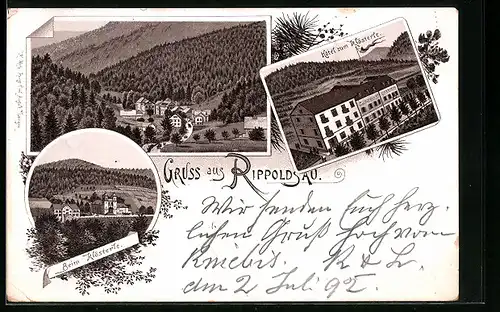 Hôtel zum Klösterle.
GRUSS aus RIPPOLDSAU.
Beim Klösterle.
Wir senden Euch herz-
lichen Gruß hoch vom
Kniebis. R & L.
den 2 Juli 92